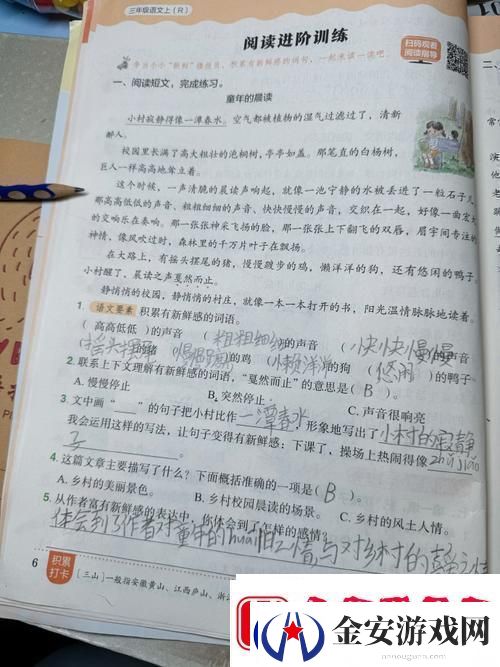 三年级语文上（R）
阅读进阶训练
扫码观看
阅读指导
争当小小“新鲜”播报员，积累有新鲜感的词句，一起来读一读吧。
一、阅读短文，完成练习。
童年的晨读
小村寂静得像一潭春水。空气都被植物的湿气过滤过了，清新
醉人。
校园里长满了高大粗壮的泡桐树，亭亭如盖。那笔直的白杨树，
巨人一样高高地耸立着。
这个时候，一声清脆的晨读声响起，就像一池宁静的水被丢进了一粒石子儿，
那高高低低的声音、粗粗细细的声音、快快慢慢的声音，交织在一起，好像一曲宏大
的交响乐在奏响。那一张张神采飞扬的脸，那一张张上下翻飞的双唇，眉宇间专注的
神情，像风吹过时，森林里的千万片叶子在飘扬。
在大路上，有摇头摆尾的猪，慢慢踱步的鸡，懒洋洋的狗，还有悠闲的鸭子。
小村醒了，晨读之声戛然而止。
静悄悄的校园，静悄悄的村庄，就像一本一本打开的书，阳光温情脉脉地读着。
1. 语文要素 积累有新鲜感的词语。
（高高低低）的声音 （粗粗细细）的声音 （快快慢慢）的声音
（摇头摆尾）的猪 的鸡 （懒洋洋）的狗 （悠闲）的鸭子
2. 联系上下文理解有新鲜感的词语，“戛然而止”的意思是（ B ）。
A. 慢慢停止 B. 突然停止 C. 声音很响亮
3. 文中画“____”的句子把小村比作一潭春水，形象地写出了小村的寂静
我会运用这样的写法，让句子变得有新鲜感：下课了，操场上热闹得像zhà jiāo
4. 这篇文章主要描写了什么？下面概括准确的一项是（ B ）。
A. 乡村的美丽景色。 B. 乡村校园晨读的场景。 C. 乡村的风土人情。
5. 从作者富有新鲜感的表达中，你体会到了怎样的感情？
体会到了作者对童年的huái旧之情与对乡村的
6
积累
打卡
【三山】一般指安徽黄山、江西庐山、浙江
金安游戏网
annouguan.com